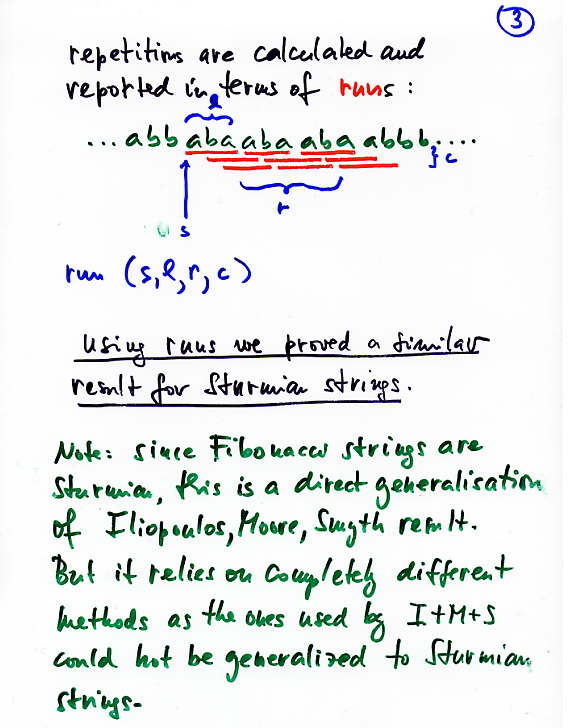 3
repetitions are calculated and
reported in terms of runs:
l
... abb aba aba aba abbb ....
} c
r
s
run (s, l, r, c)
Using runs we proved a similar
result for Sturmian strings.
Note: since Fibonacci strings are
Sturmian, this is a direct generalisation
of Iliopoulos, Moore, Smyth result.
But it relies on completely different
methods as the ones used by I+M+S
could not be generalized to Sturmian
strings.